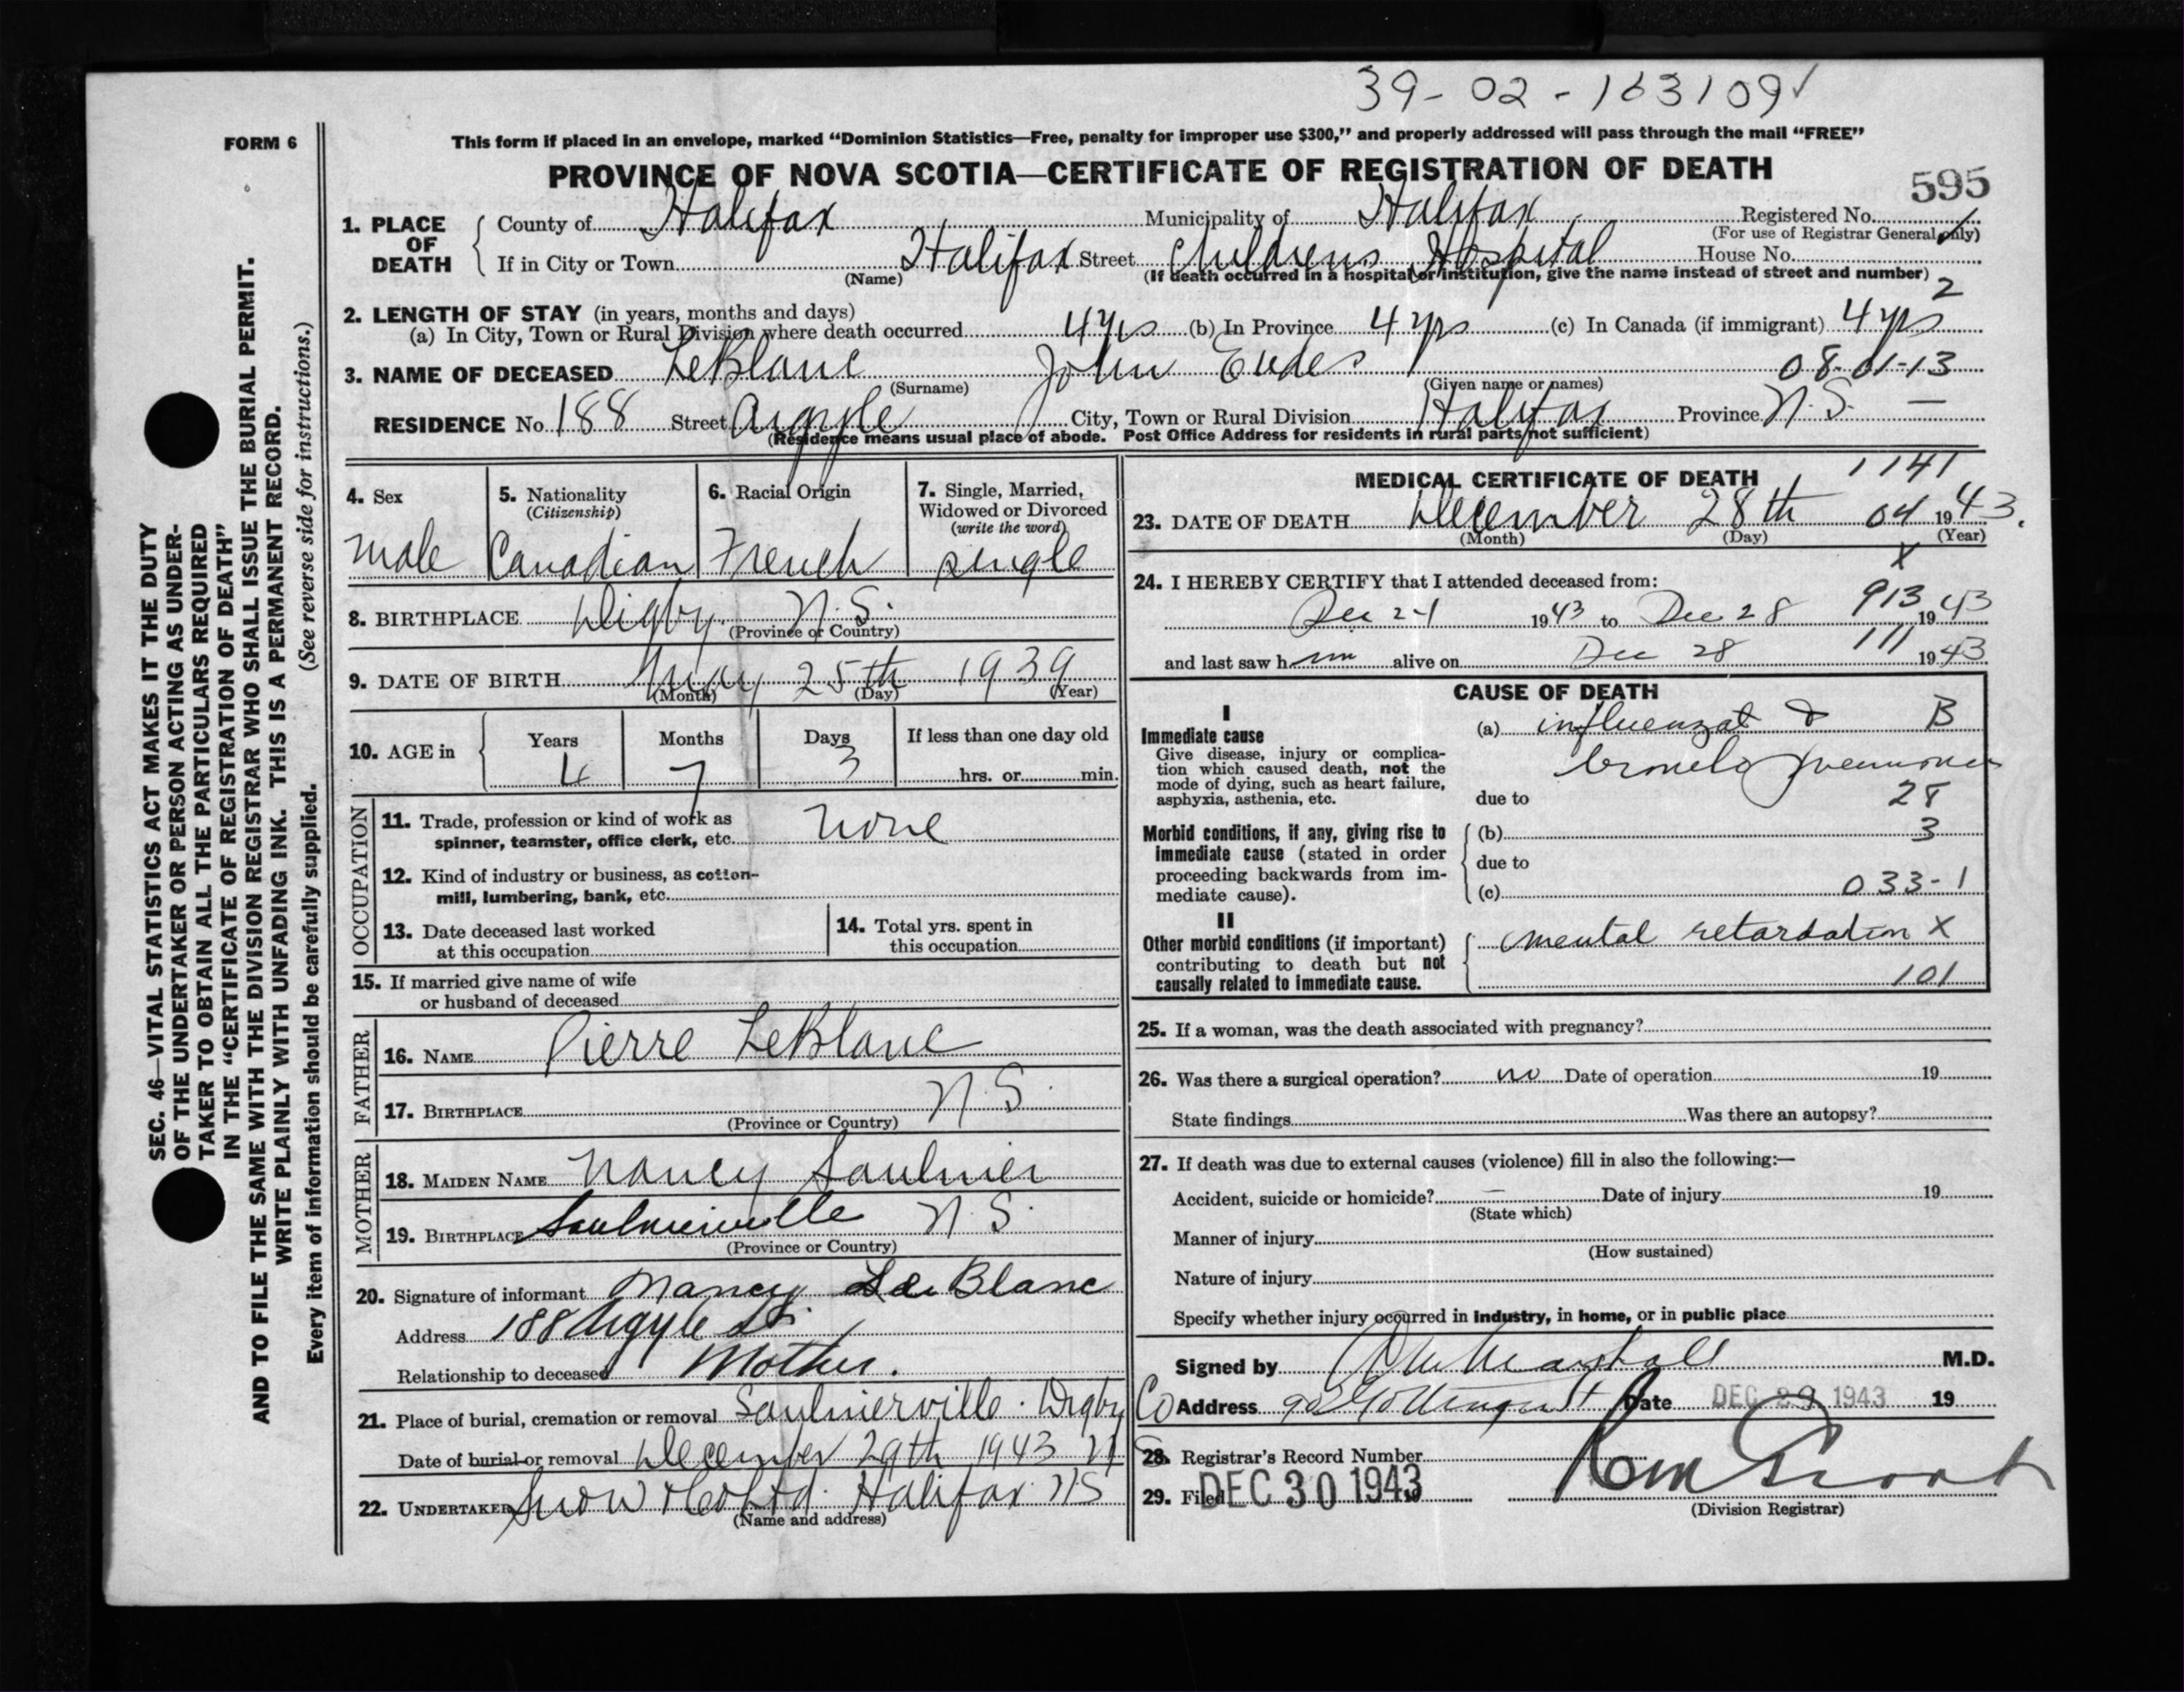 39-02-163109✓
FORM 6
This form if placed in an envelope, marked “Dominion Statistics—Free, penalty for improper use $300,” and properly addressed will pass through the mail “FREE”
PROVINCE OF NOVA SCOTIA—CERTIFICATE OF REGISTRATION OF DEATH
595
1. PLACE OF DEATH
County of Halifax Municipality of Halifax Registered No.
(For use of Registrar General only)
If in City or Town Halifax Street Childrens Hospital House No.
(Name) (If death occurred in a hospital or institution, give the name instead of street and number) 2
2. LENGTH OF STAY (in years, months and days)
(a) In City, Town or Rural Division where death occurred 4 yrs (b) In Province 4 yrs (c) In Canada (if immigrant) 4 yrs
3. NAME OF DECEASED LeBlanc John Eudes 08-01-13
(Surname) (Given name or names)
RESIDENCE No. 188 Street Argyle City, Town or Rural Division Halifax Province N.S. —
(Residence means usual place of abode. Post Office Address for residents in rural parts not sufficient)
4. Sex
male
5. Nationality
(Citizenship)
Canadian
6. Racial Origin
French
7. Single, Married,
Widowed or Divorced
(write the word)
single
8. BIRTHPLACE Digby N.S.
(Province or Country)
9. DATE OF BIRTH May 25th 1939
(Month) (Day) (Year)
10. AGE in
Years Months Days If less than one day old
4 7 3 hrs. or min.
OCCUPATION
11. Trade, profession or kind of work as
spinner, teamster, office clerk, etc. none
12. Kind of industry or business, as cotton-
mill, lumbering, bank, etc.
13. Date deceased last worked
at this occupation
14. Total yrs. spent in
this occupation
15. If married give name of wife
or husband of deceased
FATHER
16. NAME Pierre LeBlanc
17. BIRTHPLACE N.S.
(Province or Country)
MOTHER
18. MAIDEN NAME Nancy Saulnier
19. BIRTHPLACE Saulnierville N.S.
(Province or Country)
20. Signature of informant Nancy Le Blanc
Address 188 Argyle St.
Relationship to deceased Mother.
21. Place of burial, cremation or removal Saulnierville. Digby Co
Date of burial or removal December 29th 1943 NS
22. UNDERTAKER Snow & Co Ltd. Halifax NS
(Name and address)
MEDICAL CERTIFICATE OF DEATH 1141
23. DATE OF DEATH December 28th 04 1943.
(Month) (Day) (Year)
X
24. I HEREBY CERTIFY that I attended deceased from:
Dec 21 1943 to Dec 28 913 1943
and last saw him alive on Dec 28 111 1943
CAUSE OF DEATH
I
Immediate cause
Give disease, injury or complica-
tion which caused death, not the
mode of dying, such as heart failure,
asphyxia, asthenia, etc.
(a) influenzal & B
broncho pneumonia
due to 28
Morbid conditions, if any, giving rise to
immediate cause (stated in order
proceeding backwards from im-
mediate cause).
(b) 3
due to
(c) 033-1
II
Other morbid conditions (if important)
contributing to death but not
causally related to immediate cause.
mental retardation X
101
25. If a woman, was the death associated with pregnancy?
26. Was there a surgical operation? no Date of operation 19
State findings Was there an autopsy?
27. If death was due to external causes (violence) fill in also the following:—
Accident, suicide or homicide? — Date of injury 19
(State which)
Manner of injury
(How sustained)
Nature of injury
Specify whether injury occurred in industry, in home, or in public place
Signed by Marshall M.D.
Address Gottingen St Date DEC 29 1943 19
28. Registrar's Record Number
29. Filed DEC 30 1943
(Division Registrar)
SEC. 46—VITAL STATISTICS ACT MAKES IT THE DUTY
OF THE UNDERTAKER OR PERSON ACTING AS UNDER-
TAKER TO OBTAIN ALL THE PARTICULARS REQUIRED
IN THE “CERTIFICATE OF REGISTRATION OF DEATH”
AND TO FILE THE SAME WITH THE DIVISION REGISTRAR WHO SHALL ISSUE THE BURIAL PERMIT.
WRITE PLAINLY WITH UNFADING INK. THIS IS A PERMANENT RECORD.
Every item of information should be carefully supplied. (See reverse side for instructions.)